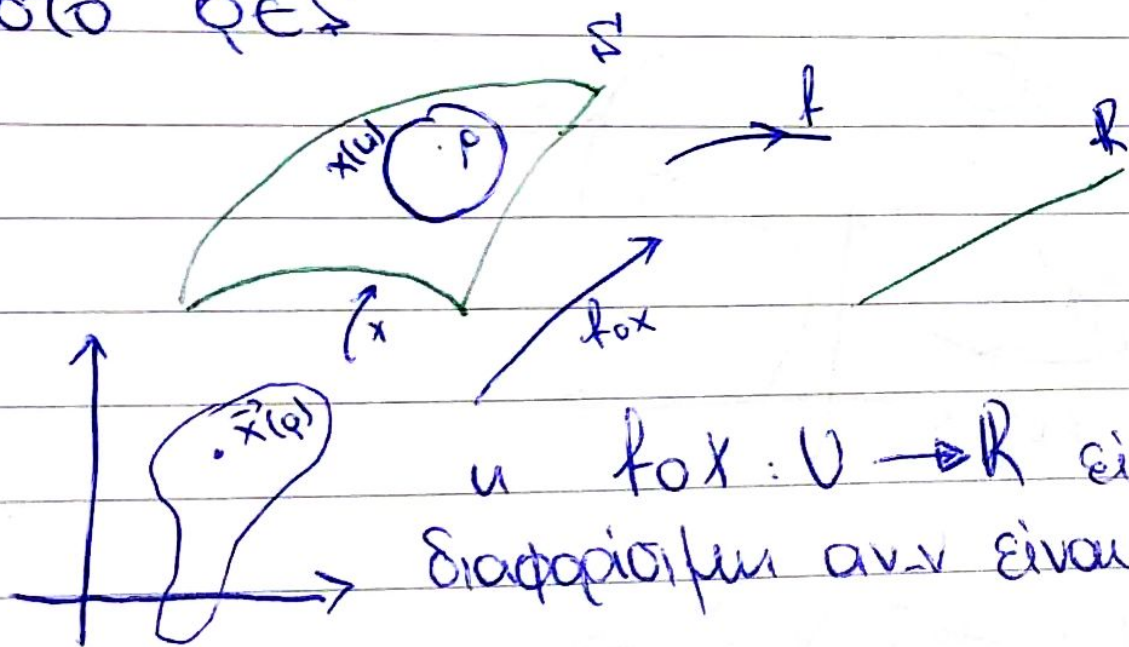 στο p∈S
S
f
R
x(u)
p
x
f∘x
x⃗(p)
η f∘x : U → R εί
διαφορίσιμη αν-ν είναι